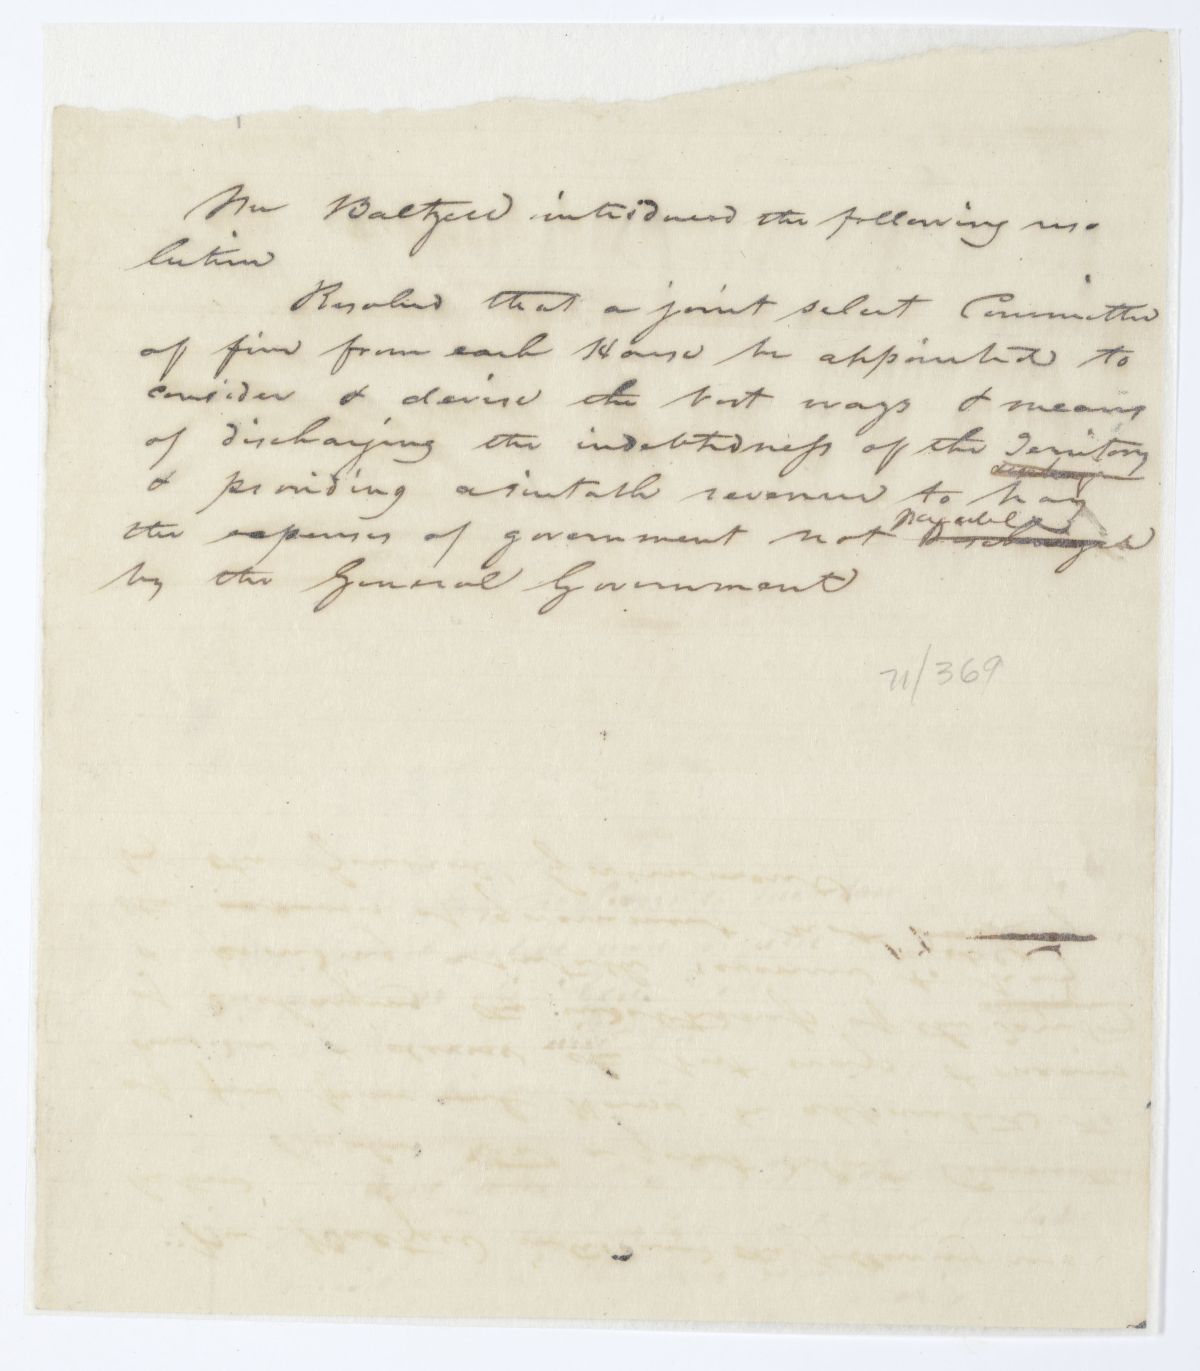 Mr Baltzell introduced the following reso
lution
Resolved that a joint select Committee
of five from each House be appointed to
consider & devise the best ways & means
of discharging the indebtedness of the Territory
& providing a suitable revenue to pay
payable
the expenses of government not discharged
by the General Government
71/369